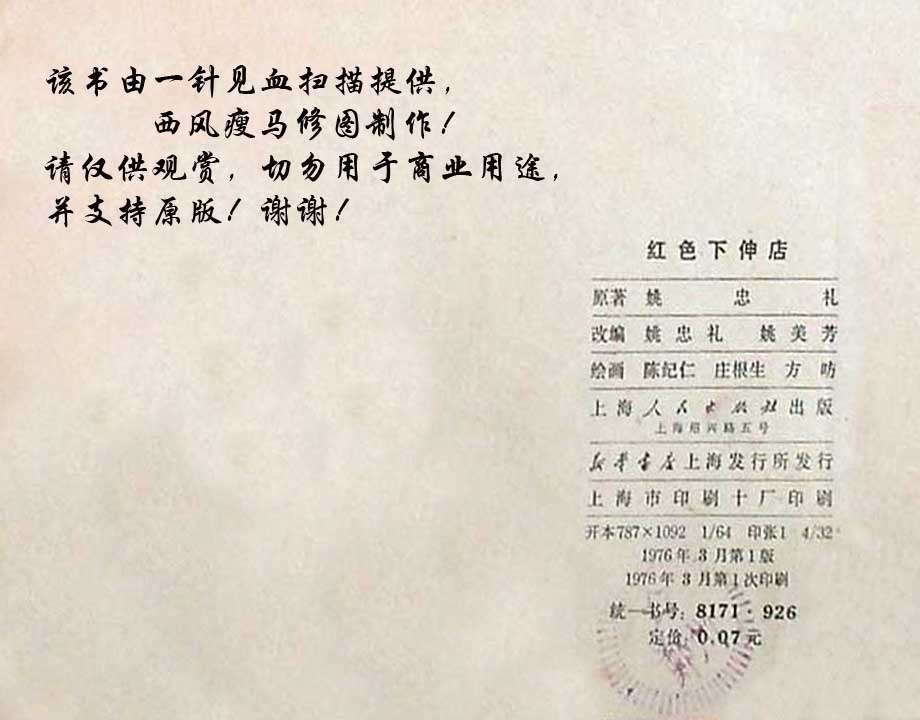 该书由一针见血扫描提供，
西风瘦马修图制作！
请仅供观赏，切勿用于商业用途，
并支持原版！谢谢！
红色下伸店
原著 姚忠礼
改编 姚忠礼 姚美芳
绘画 陈纪仁 庄根生 方昉
上海人民出版社出版
上海绍兴路五号
新华书店上海发行所发行
上海市印刷十厂印刷
开本787×1092 1/64 印张1 4/32
1976年3月第1版
1976年3月第1次印刷
统一书号：8171·926
定价：0.07元